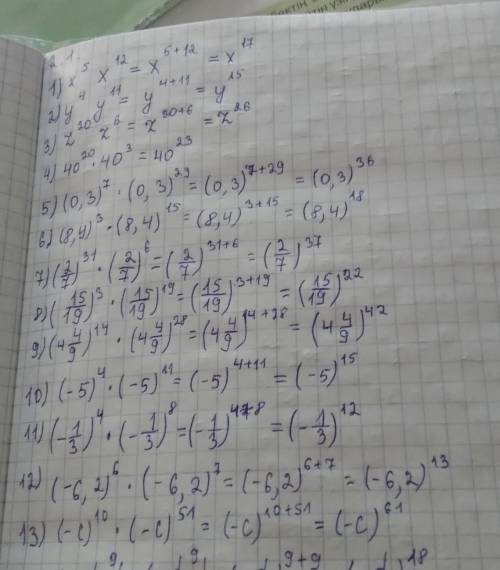 2.1
1) x⁵ x¹² = x⁵⁺¹² = x¹⁷
2) y⁴ y¹¹ = y⁴⁺¹¹ = y¹⁵
3) z²⁰ z⁶ = z²⁰⁺⁶ = z²⁶
4) 40²⁰ · 40³ = 40²³
5) (0,3)⁷ · (0,3)²⁹ = (0,3)⁷⁺²⁹ = (0,3)³⁶
6) (8,4)³ · (8,4)¹⁵ = (8,4)³⁺¹⁵ = (8,4)¹⁸
7) (2/7)³¹ · (2/7)⁶ = (2/7)³¹⁺⁶ = (2/7)³⁷
8) (15/19)³ · (15/19)¹⁹ = (15/19)³⁺¹⁹ = (15/19)²²
9) (4 4/9)¹⁴ · (4 4/9)²⁸ = (4 4/9)¹⁴⁺²⁸ = (4 4/9)⁴²
10) (-5)⁴ · (-5)¹¹ = (-5)⁴⁺¹¹ = (-5)¹⁵
11) (-1/3)⁴ · (-1/3)⁸ = (-1/3)⁴⁺⁸ = (-1/3)¹²
12) (-6,2)⁶ · (-6,2)⁷ = (-6,2)⁶⁺⁷ = (-6,2)¹³
13) (-c)¹⁰ · (-c)⁵¹ = (-c)¹⁰⁺⁵¹ = (-c)⁶¹